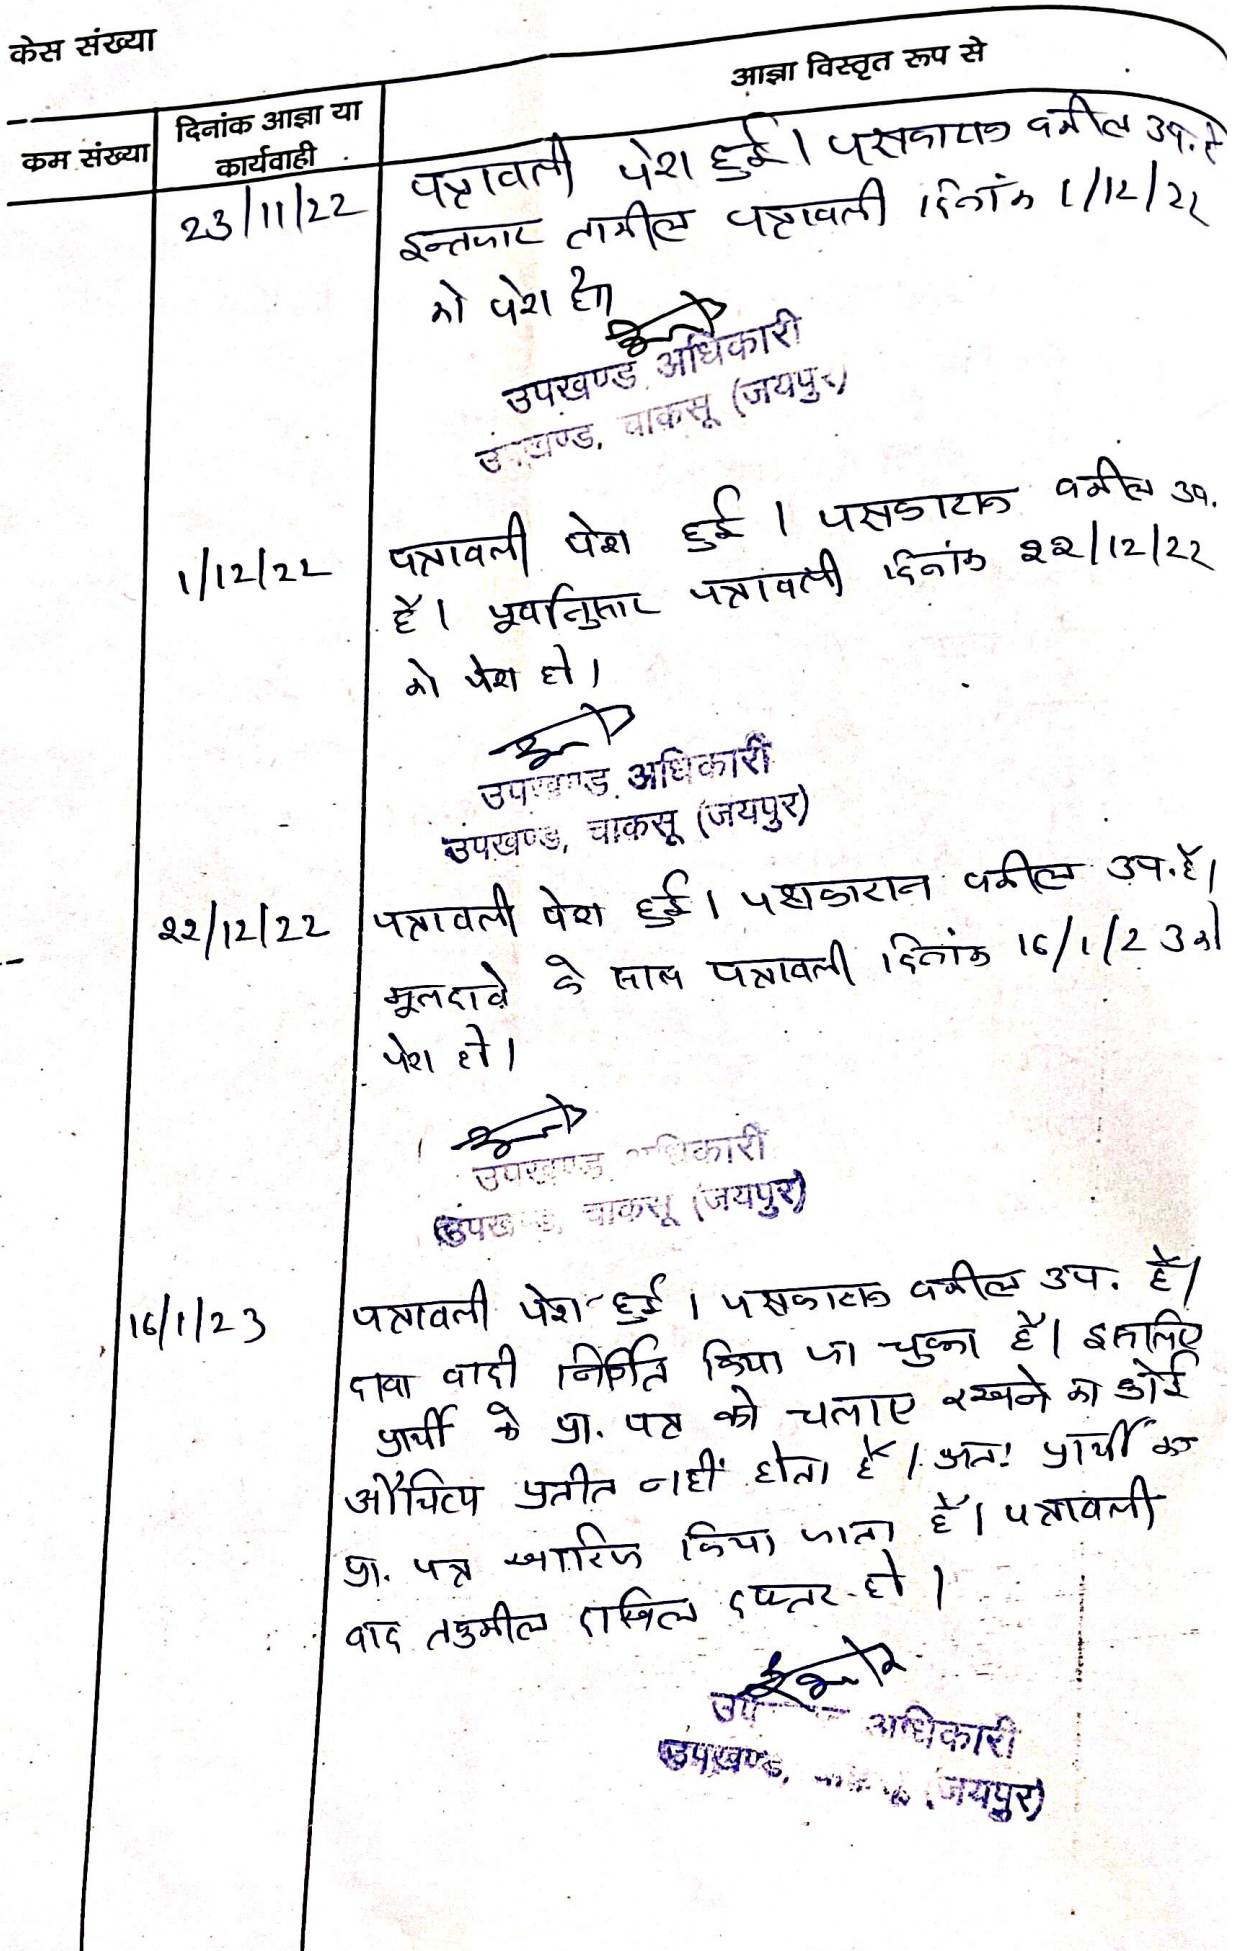 केस संख्या
आज्ञा विस्तृत रूप से
क्रम संख्या
दिनांक आज्ञा या
कार्यवाही
23/11/22
पत्रावली पेश हुई। पक्षकारान वकील उप. है
इन्तजार तामील पत्रावली दिनांक 1/12/22
को पेश हो।
उपखण्ड अधिकारी
उपखण्ड, चाकसू (जयपुर)
1/12/22
पत्रावली पेश हुई। पक्षकारान वकील उप.
है। पूर्वानुसार पत्रावली दिनांक 22/12/22
को पेश हो।
उपखण्ड अधिकारी
उपखण्ड, चाकसू (जयपुर)
22/12/22
पत्रावली पेश हुई। पक्षकारान वकील उप. है।
मूलदावे के साथ पत्रावली दिनांक 16/1/23 को
पेश हो।
उपखण्ड अधिकारी
उपखण्ड, चाकसू (जयपुर)
16/1/23
पत्रावली पेश हुई। पक्षकारान वकील उप. है।
दावा वादी निर्णित किया जा चुका है। इसलिए
प्रार्थी के प्रा. पत्र को चलाए रखने का कोई
औचित्य प्रतीत नहीं होता है। अतः प्रार्थी का
प्रा. पत्र खारिज किया जाता है। पत्रावली
बाद तकमील दाखिल दफ्तर हो।
उपखण्ड अधिकारी
उपखण्ड, चाकसू (जयपुर)